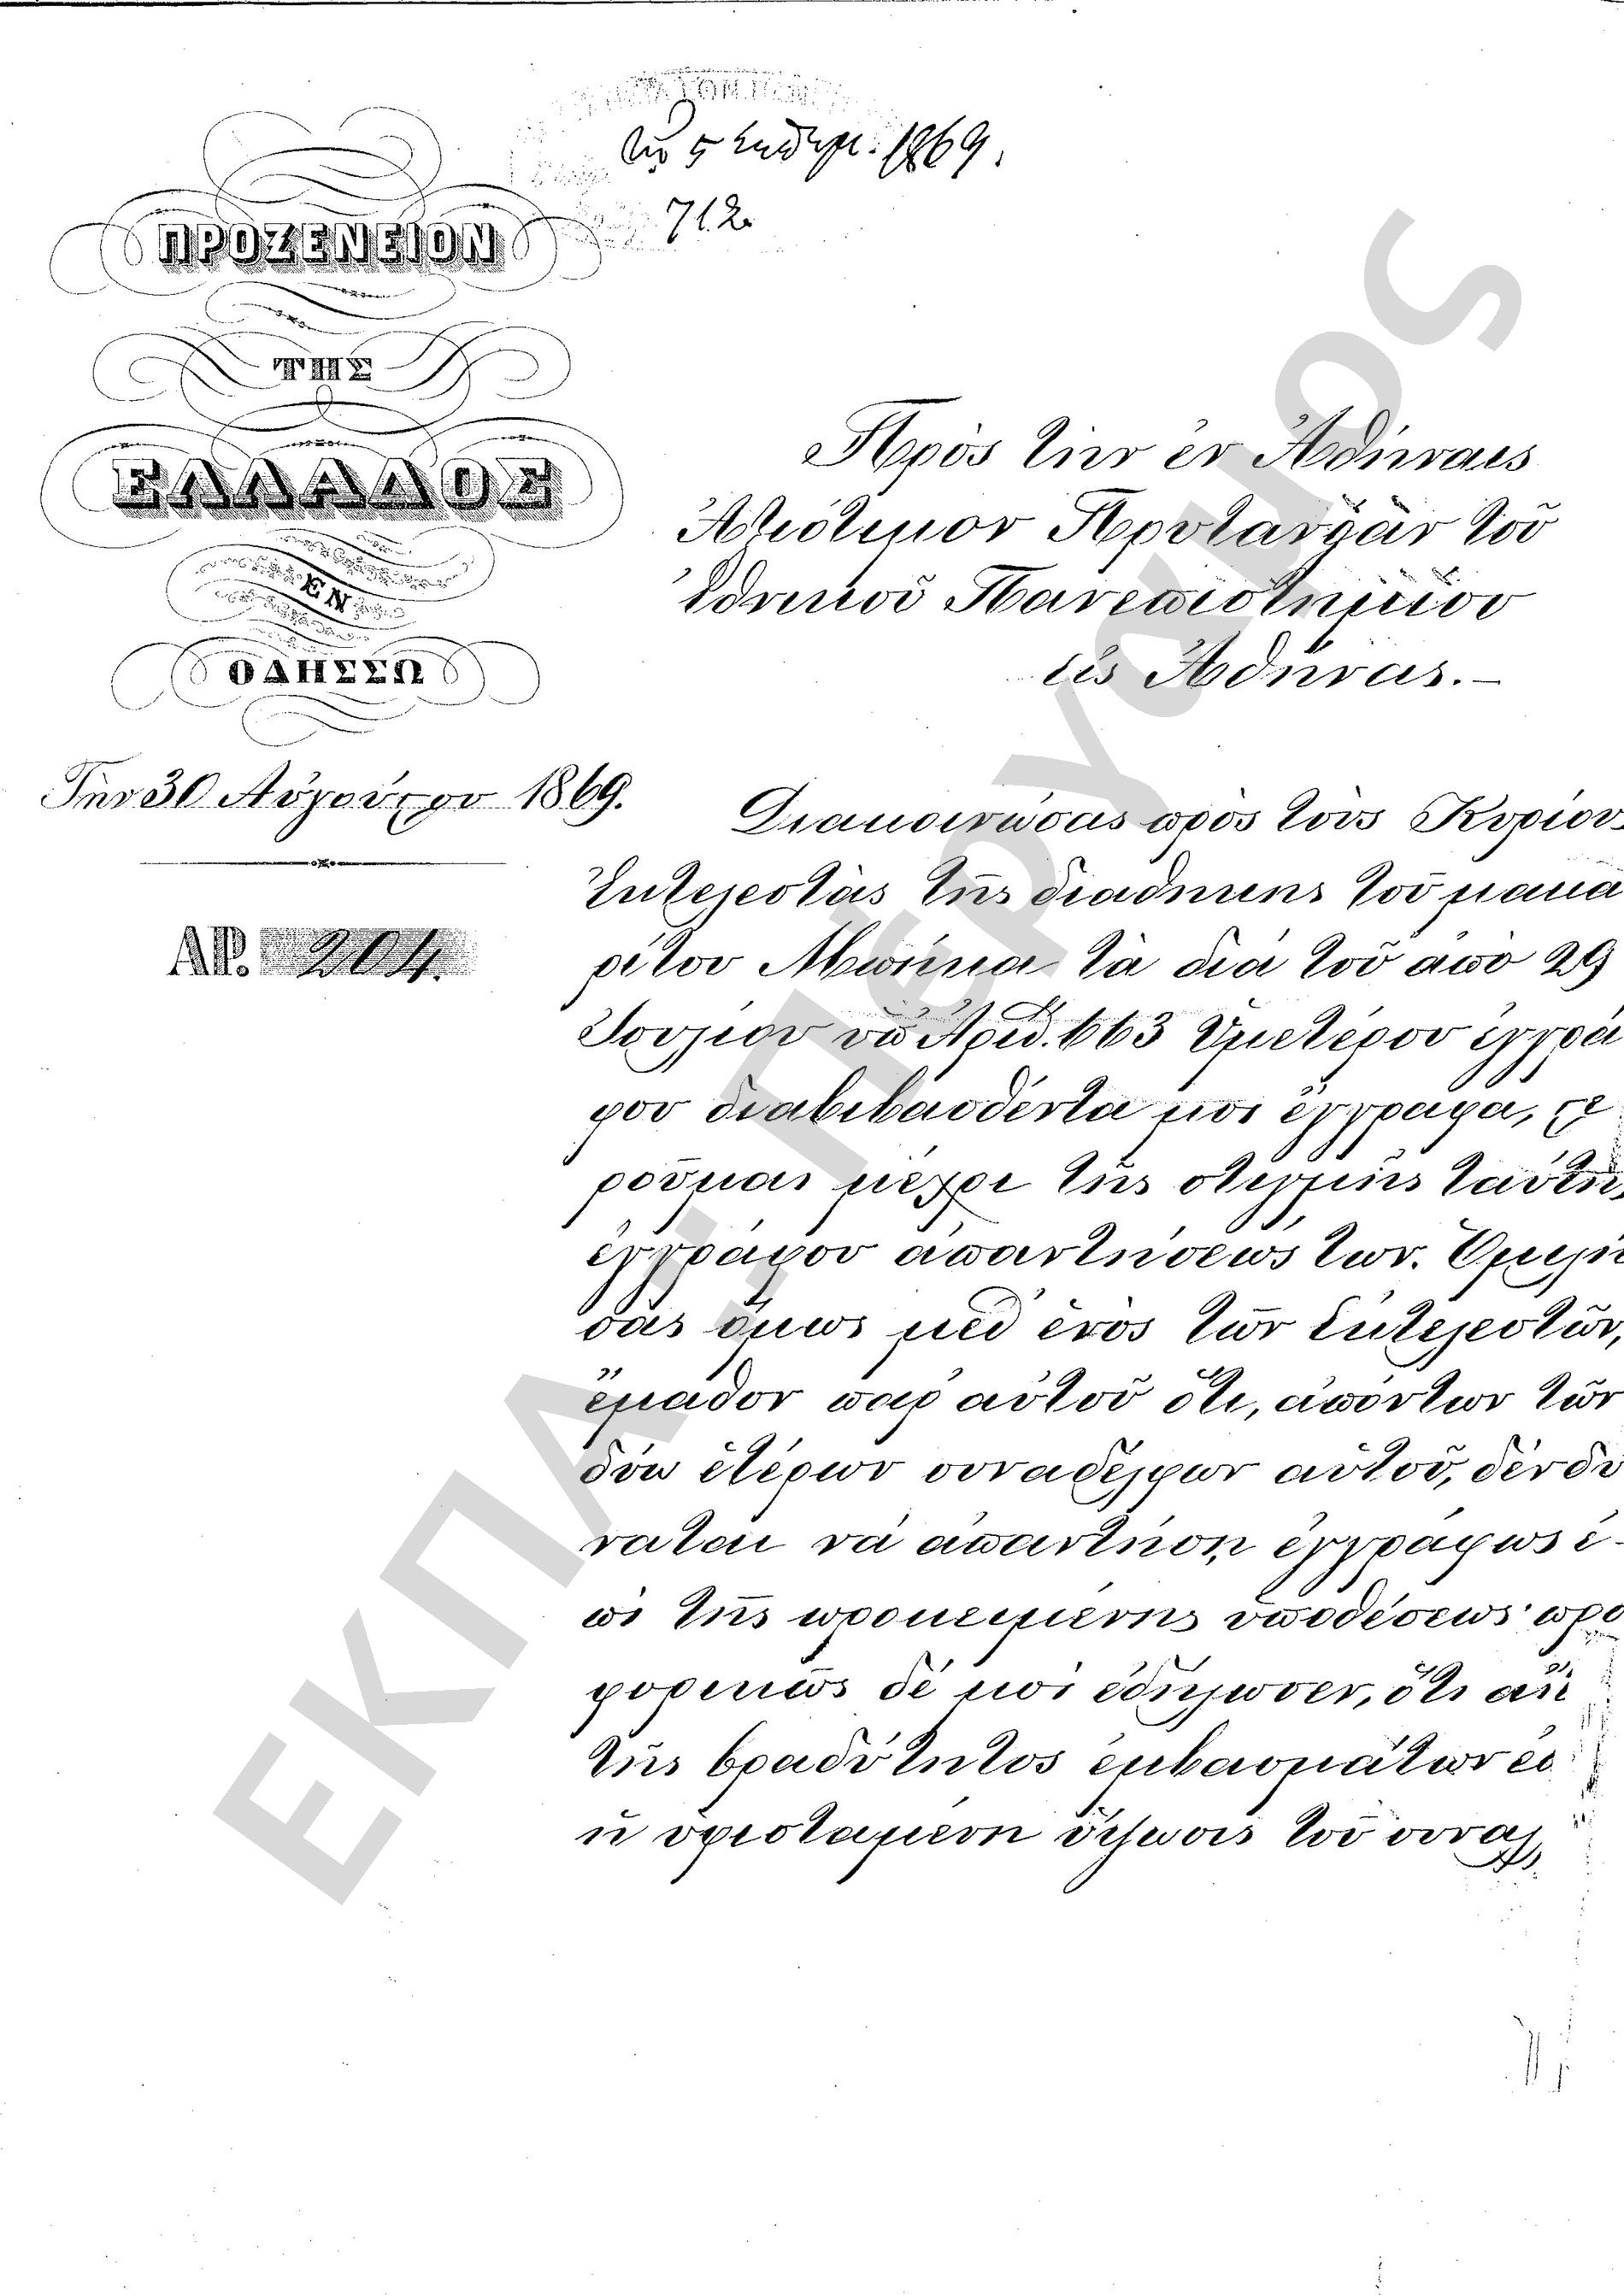 τῇ 5 Σεπτεμ. 1869.
712
ΠΡΟΞΕΝΕΙΟΝ
ΤΗΣ
ΕΛΛΑΔΟΣ
ΕΝ
ΟΔΗΣΣΩ
Τὴν 30 Αὐγούστου 1869.
ΑΡ. 204.
Πρὸς τὴν ἐν Ἀθήναις
Ἀξιότιμον Πρυτανείαν τοῦ
Ἐθνικοῦ Πανεπιστημίου
εἰς Ἀθήνας.–
Διακοινώσας πρὸς τοὺς Κυρίους
Ἐκτελεστὰς τῆς διαθήκης τοῦ μακα
ρίτου τὰ διὰ τοῦ ἀπὸ 29
Ἰουλίου ὑπ' Ἀριθ. 663 Ὑμετέρου ἐγγρά
φου διαβιβασθέντα μοι ἔγγραφα, στε
ροῦμαι μέχρι τῆς στιγμῆς ταύτης
ἐγγράφου ἀπαντήσεως των. Ὁμιλή
σας ὅμως μεθ' ἑνὸς τῶν ἐκτελεστῶν,
ἔμαθον παρ' αὐτοῦ ὅτι, ἀπόντων τῶν
δύω ἑτέρων συναδέλφων αὐτοῦ, δὲν δύ
ναται νὰ ἀπαντήσῃ ἐγγράφως ἐ-
πὶ τῆς προκειμένης ὑποθέσεως· προ
φορικῶς δέ μοι ἐδήλωσεν, ὅτι
τῆς βραδύτητος ἐμβασμάτων
ἡ ὑφισταμένη τοῦ συναλ
ΕΚΠΑ - Πέργαμος